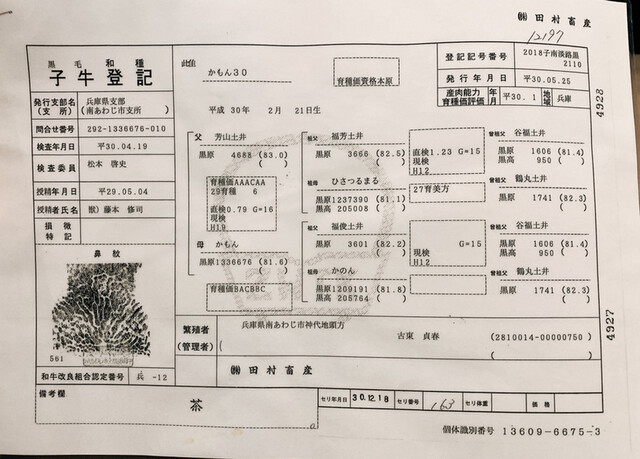 ㈱ 田村畜産
12197
黒毛和種
子牛登記
名号
かもん30
育種価資格本原
登記記号番号
2018子南淡路黒
2110
発行年月日
平30.05.25
産肉能力 年月
育種価評価
平30. 1
地域
兵庫
発行支部名
(支所)
兵庫県支部
(南あわじ市支所)
平成 30年 2月 21日生
問合せ番号
292-1336676-010
検査年月日
平30.04.19
検査委員
松本 啓史
授精年月日
平29.05.04
授精者氏名
獣)藤本 修司
損徴
特記
鼻紋
561
和牛改良組合認定番号
兵 -12
父 芳山土井
黒原 4688 (83.0)
育種価AAACAA
29育種 6
直検0.79 G=16
現検
H19
母 かもん
黒原1336676 (81.6)
育種価BACBBC
祖父 福芳土井
黒原 3666 (82.5)
直検1.23 G=15
現検
H12
祖母 ひさつるまる
黒原1237390 (81.1)
黒高 205008
27育美方
祖父 福俊土井
黒原 3601 (82.2)
G=15
現検
H12
祖母 かのん
黒原1209191 (81.8)
黒高 205764
曾祖父 谷福土井
黒原 1606 (81.4)
黒高 950
曾祖父 鶴丸土井
黒原 1741 (82.3)
曾祖父 谷福土井
黒原 1606 (81.4)
黒高 950
曾祖父 鶴丸土井
黒原 1741 (82.3)
4928
4927
繁殖者
(管理者)
兵庫県南あわじ市神代地頭方
古東 貞春
(2810014-00000750)
㈱ 田村畜産
備考欄
セリ年月日
30.12.18
セリ番号
163
セリ体重
価格
個体識別番号 13609-6675-3